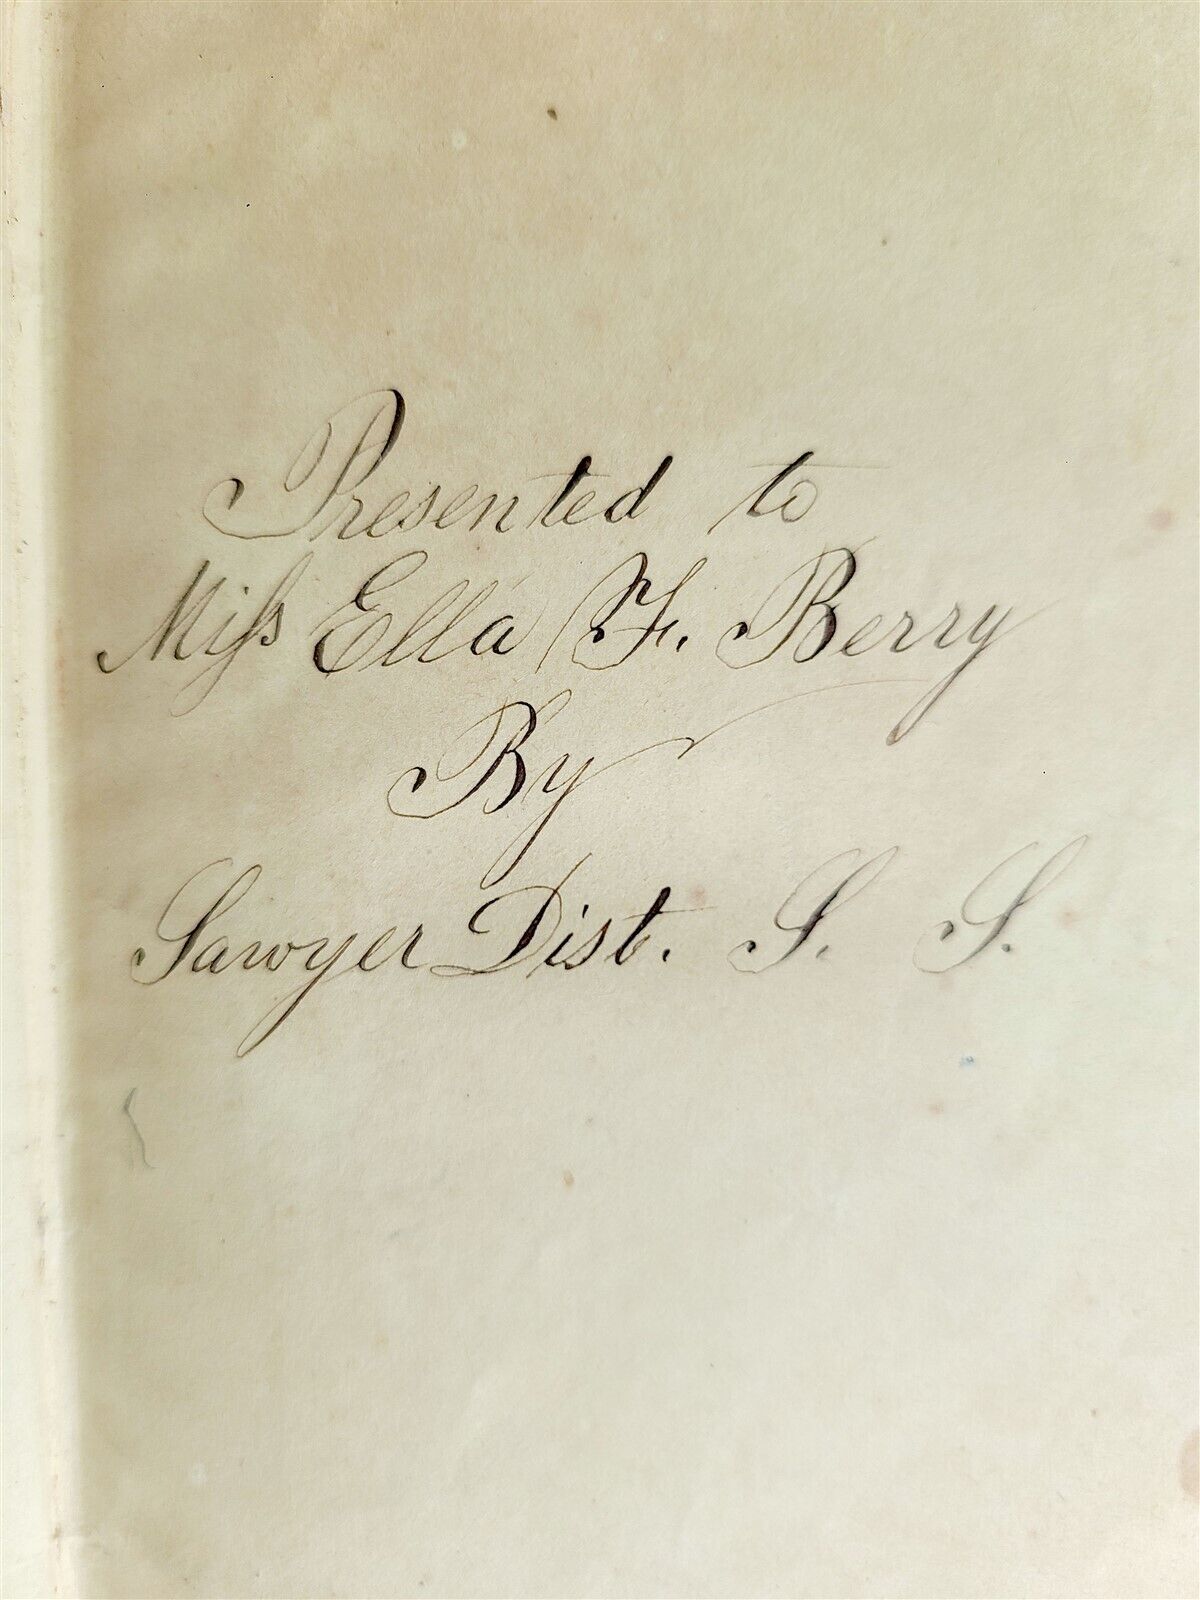 Presented to
Miſs Ella F. Berry
By
Sawyer Dist. S. S.